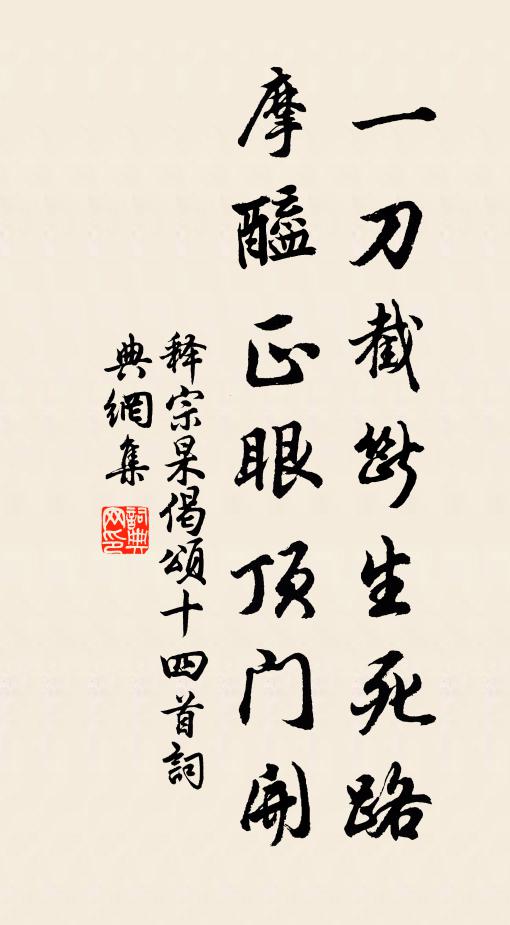 一刀截断生死路
摩醯正眼顶门开
释宗杲偈颂十四首詞
典網集
詞典
网印